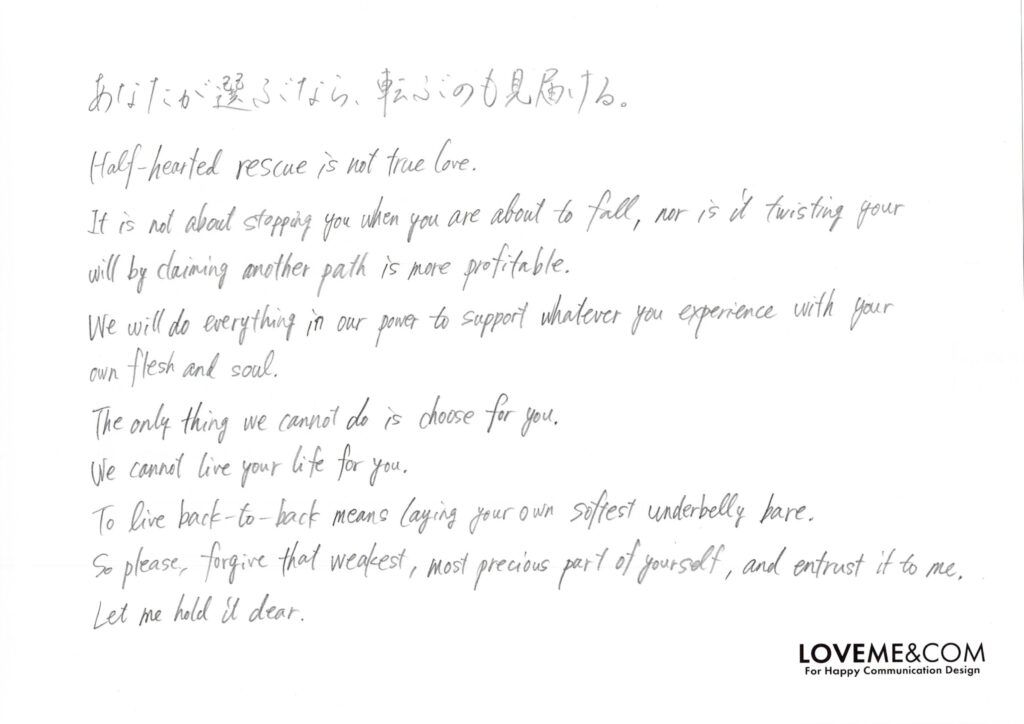 あなたが選ぶなら、転ぶのも見届ける。
Half-hearted rescue is not true love.
It is not about stopping you when you are about to fall, nor is it twisting your
will by claiming another path is more profitable.
We will do everything in our power to support whatever you experience with your
own flesh and soul.
The only thing we cannot do is choose for you.
We cannot live your life for you.
To live back-to-back means laying your own softest underbelly bare.
So please, forgive that weakest, most precious part of yourself, and entrust it to me.
Let me hold it dear.
LOVEME&COM
For Happy Communication Design